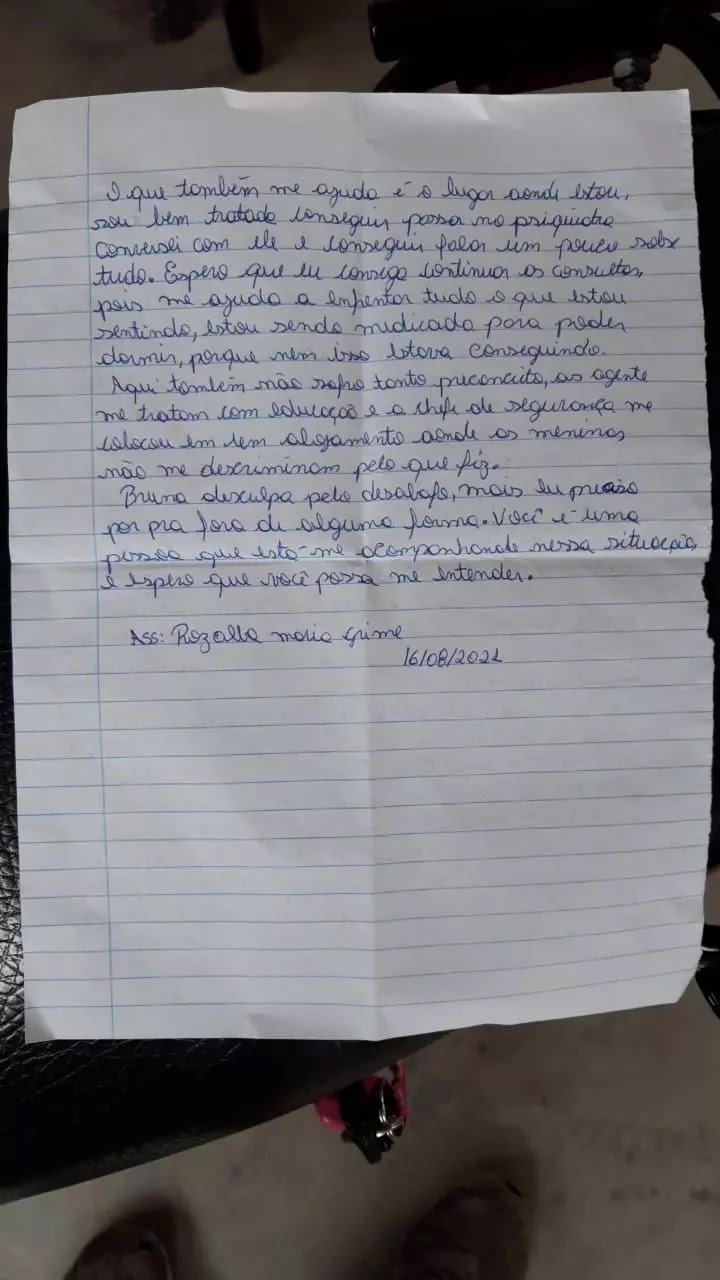 O que também me ajuda é o lugar aonde estou,
sou bem tratada conseguir passa no psiquiatra
conversei com ele e conseguir falar um pouco sobre
tudo. Espero que eu consiga continuar as consultas,
pois me ajuda a enfrentar tudo o que estou
sentindo, estou sendo medicada para poder
dormir, porque nem isso estava conseguindo.
Aqui também não sofro tanto preconceito, as agente
me tratam com educação e a chefe de segurança me
colocou em um alojamento aonde as meninas
não me descriminam pelo que fiz.
Bruna desculpa pelo desabafo, mais eu preciso
por pra fora de alguma forma. Você é uma
pessoa que esta me acompanhando nessa situação,
e espero que você possa me entender.
Ass: Rozalba maria Grime
16/08/2021